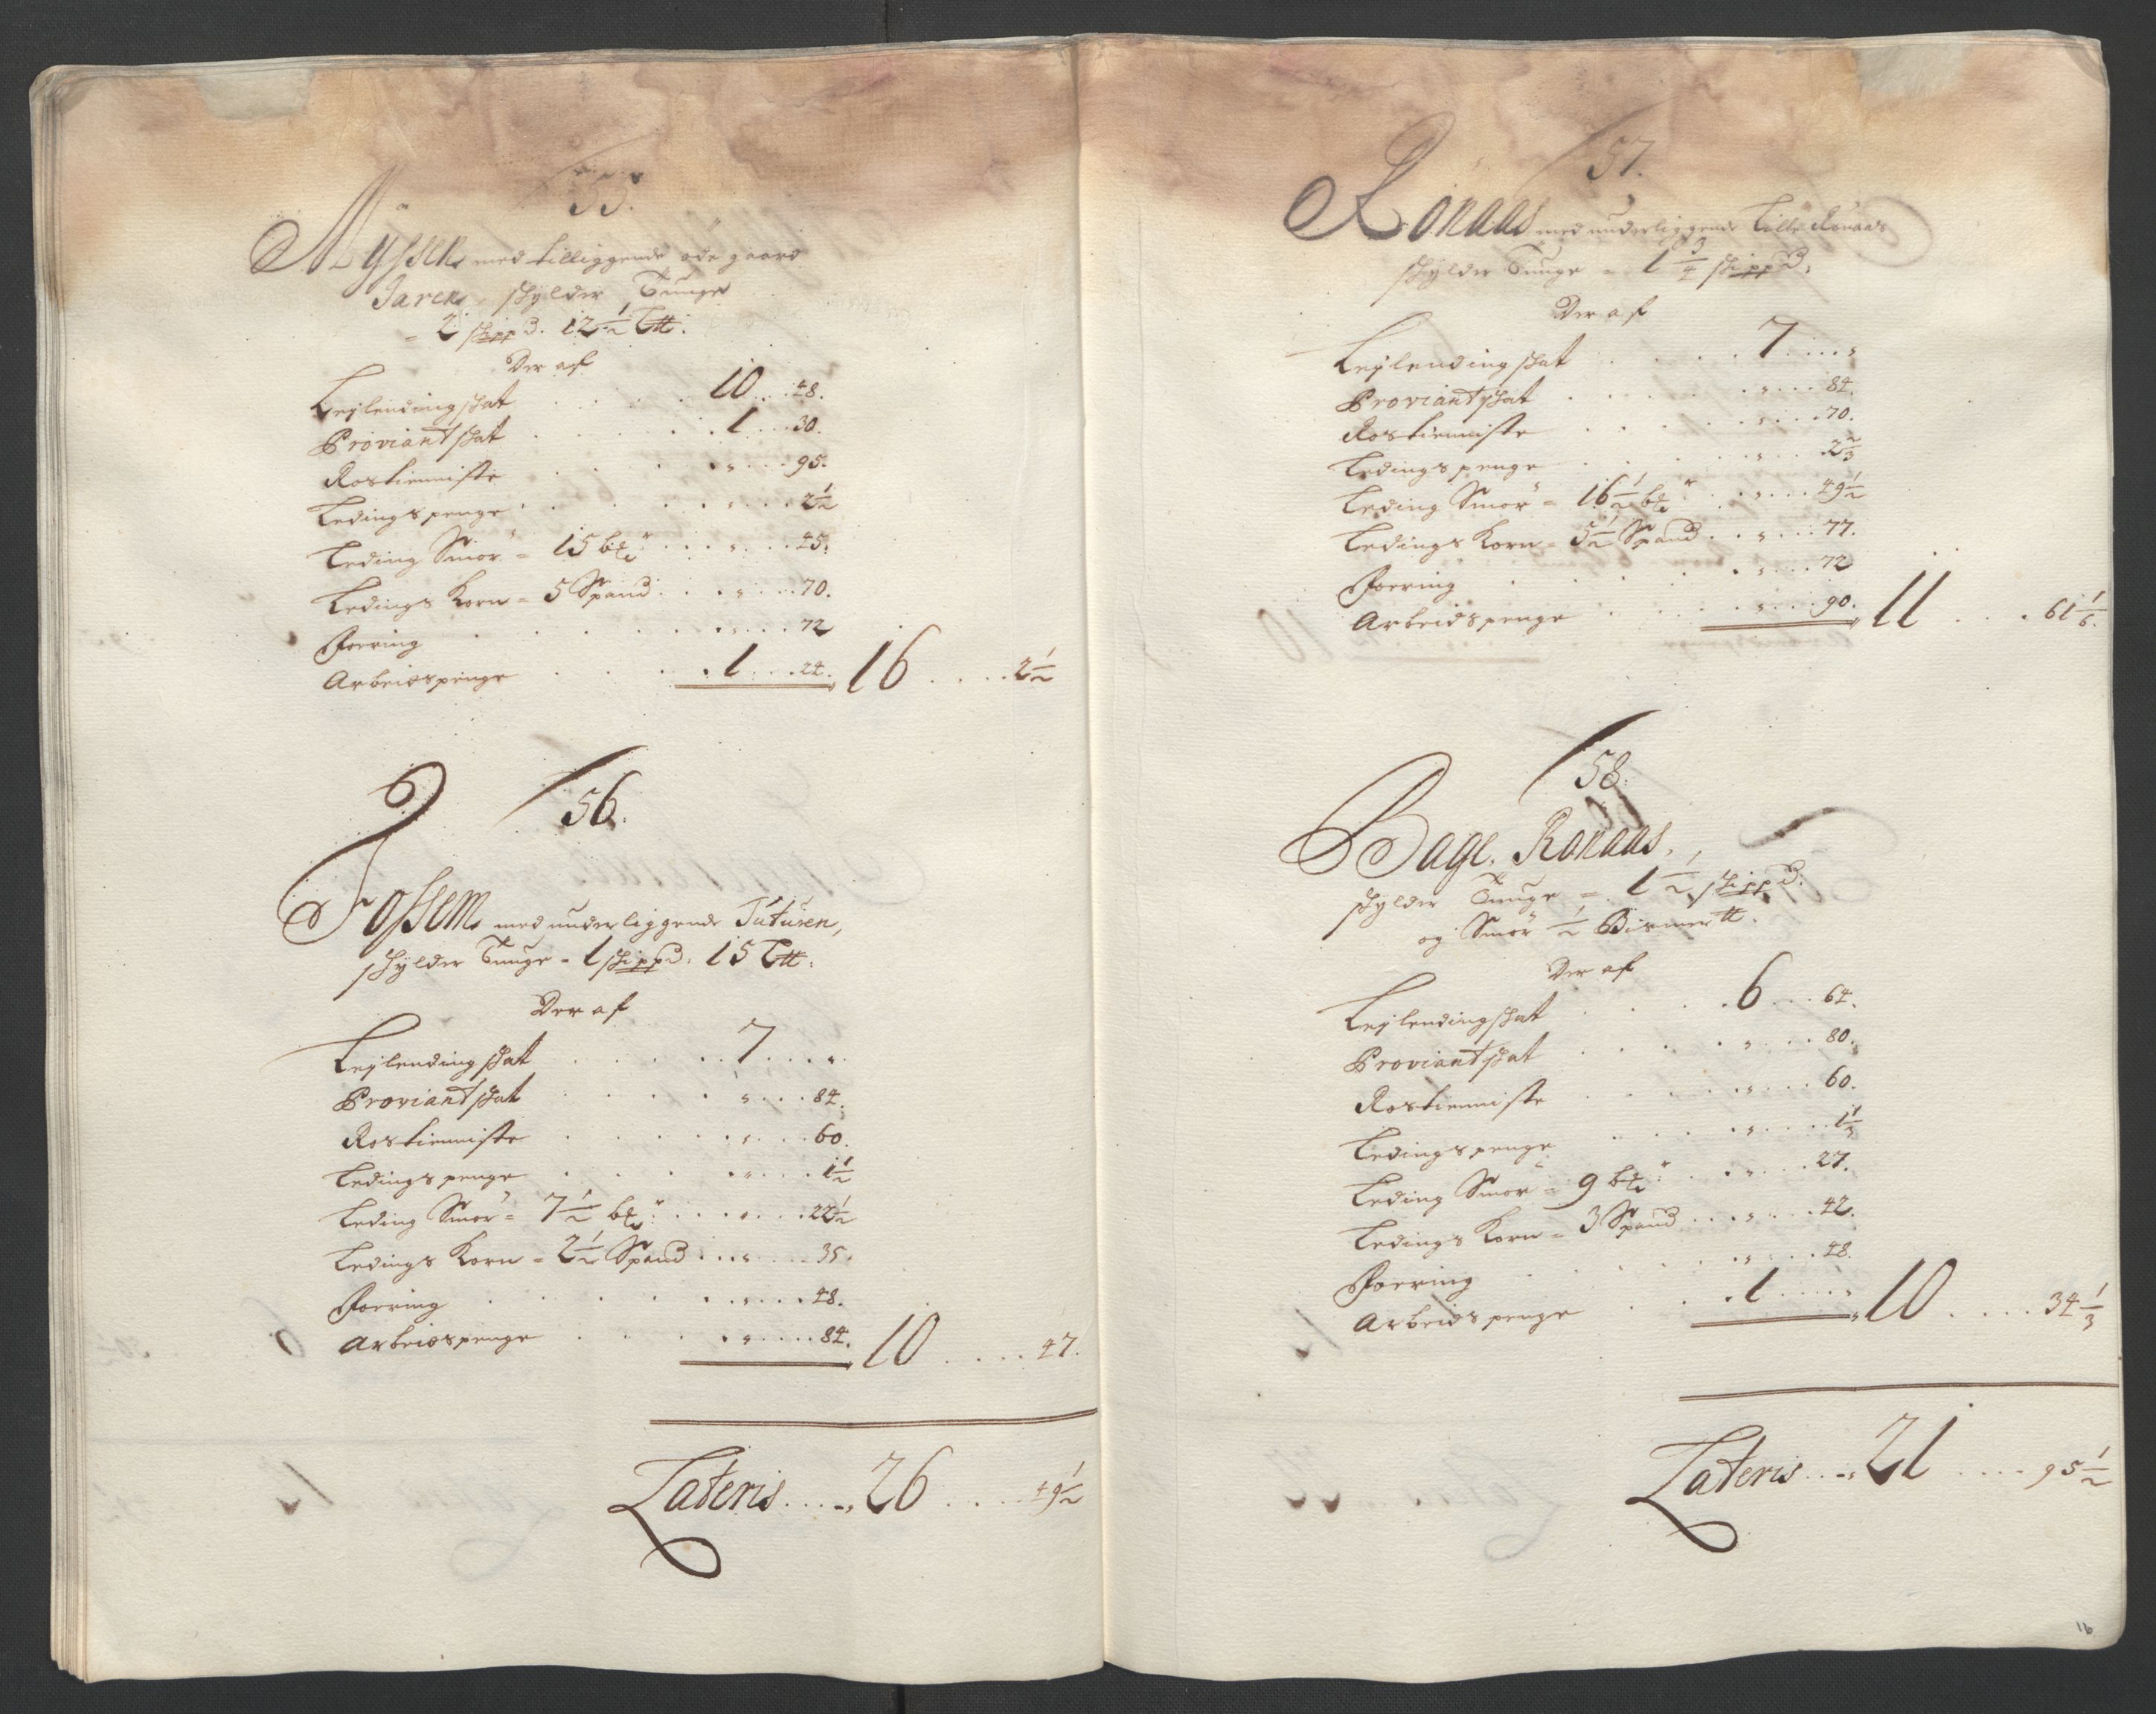 55.
Myssen med tilliggende øde gaard
Jaren, schylder Tunge
= 2 schippd. 12½ L℔.
Der af
Leylending schat . . . . . 10 . . . 48.
Proviant schat . . . . . 1 . . . 30.
Rostienniste . . . . . " . . . 95.
Ledings penge . . . . . " . . . 2½
Leding Smør = 15 bḷr . . . " . . . 45.
Ledings Korn = 5 Spand . . . " . . . 70.
Foering . . . . . " . . . 72
Arbeidspenge . . . . . 1 . . . 24. 16 . . . . 2½
56.
Fossem med underliggende Tutusen,
schylder Tunge = 1 schippd. 15 L℔.
Der af
Leylending schat . . . . . 7 . . . ".
Proviant schat . . . . . " . . . 84.
Rostienniste . . . . . " . . . 60.
Ledings penge . . . . . " . . . 1½
Leding Smør = 7½ bḷr . . . " . . . 22½
Ledings Korn = 2½ Spand . . . " . . . 35.
Foering . . . . . " . . . 48.
Arbeidspenge . . . . . " . . . 84. 10 . . . . 47.
Lateris . . . . 26 . . . . 49½
57.
Ronaas med underliggende Lille Ronaas
schylder Tunge = 1¾ schippd.
Der af
Leylending schat . . . . . 7 . . . "
Proviant schat . . . . . " . . . 84.
Rostienniste . . . . . " . . . 70.
Ledings penge . . . . . " . . . 2⅔
Leding Smør = 16½ bḷr . . . " . . . 49½
Ledings Korn = 5½ Spand . . . " . . . 77.
Foering . . . . . " . . . 72
Arbeids penge . . . . . " . . . 90. 11 . . . . 61⅙.
58.
Bage. Ronaas.
schylder Tunge = 1½ schippd.
og Smør ½ Bismer ℔.
Der af
Leylending schat . . . . . 6 . . . 64.
Proviant schat . . . . . " . . . 80.
Rostienniste . . . . . " . . . 60.
Ledings penge . . . . . " . . . 1⅓
Leding Smør = 9 bḷr . . . " . . . 27.
Ledings Korn = 3 Spand . . . " . . . 42.
Foering . . . . . " . . . 48.
Arbeids penge . . . . . 1 . . . " 10 . . . . 34⅓
Lateris . . . . 21 . . . . 95½
16